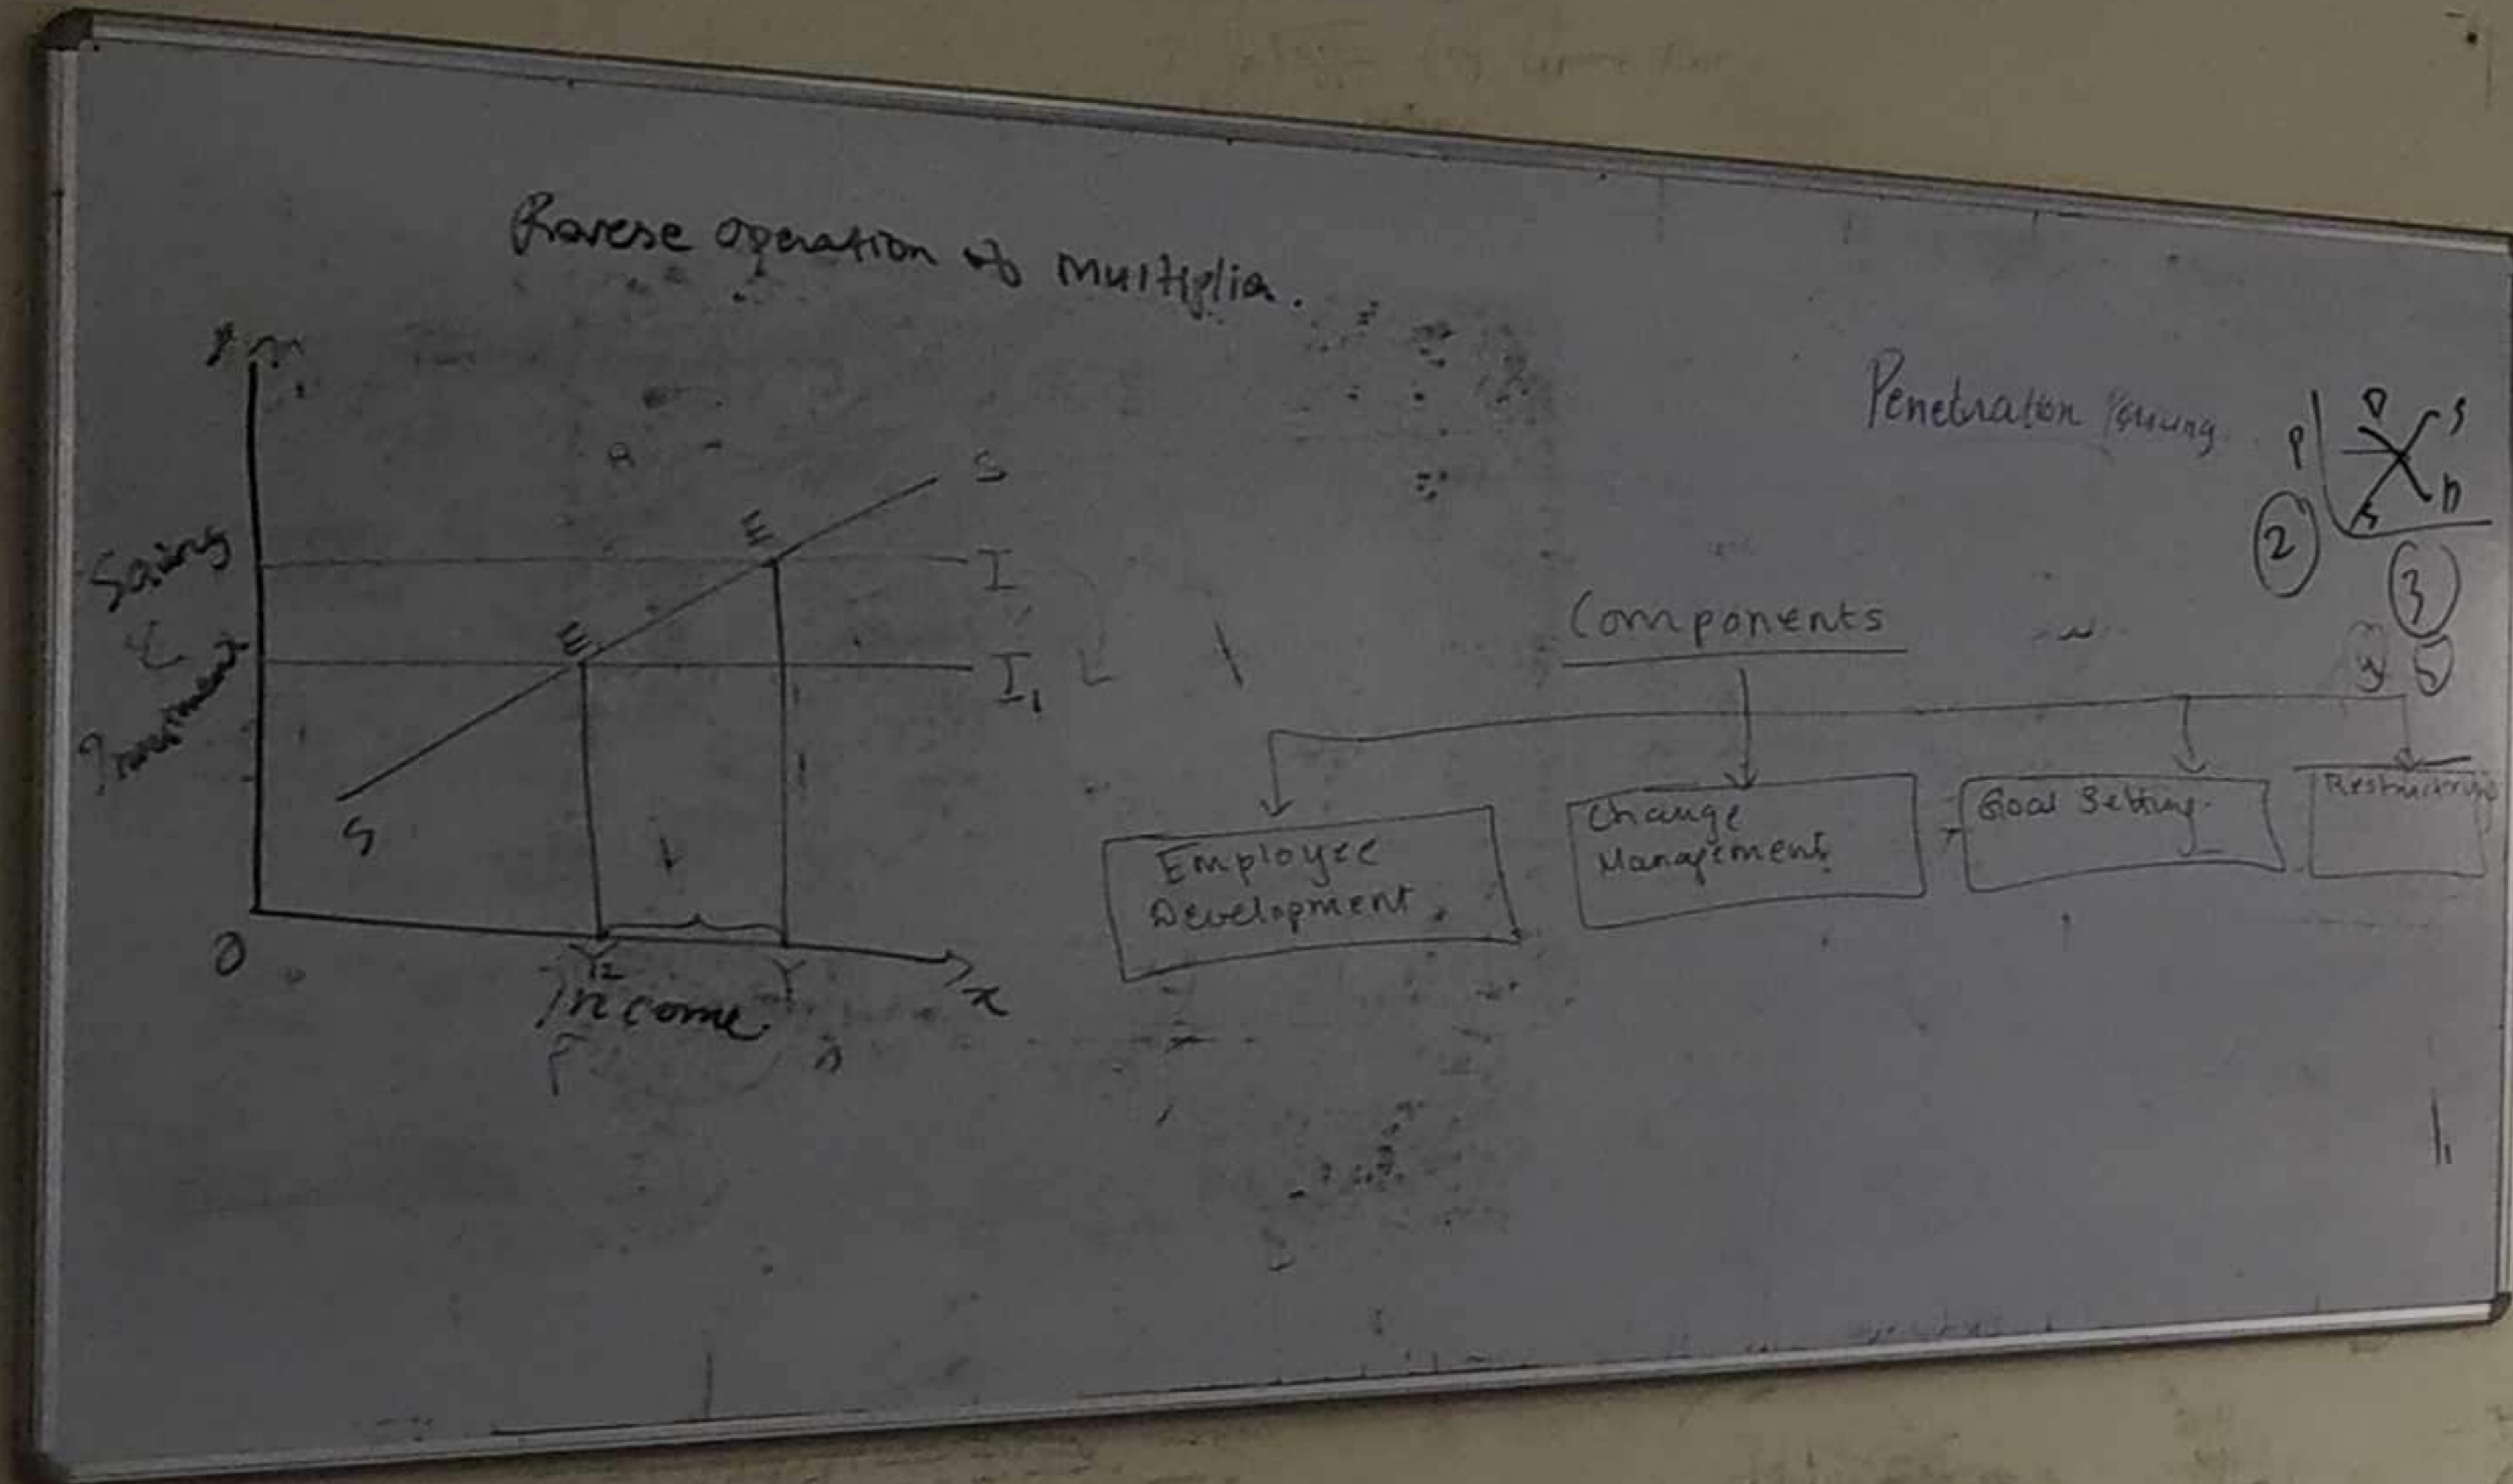 Reverse operation of multiplier.
Saving
&
Investment
S
E
I
E
I₁
S
O
Y₂
Y
Income
x
Penetration Pricing
P
D
S
D
2
3
5
Components
Employee
Development
Change
Management
Goal Setting
Restructuring